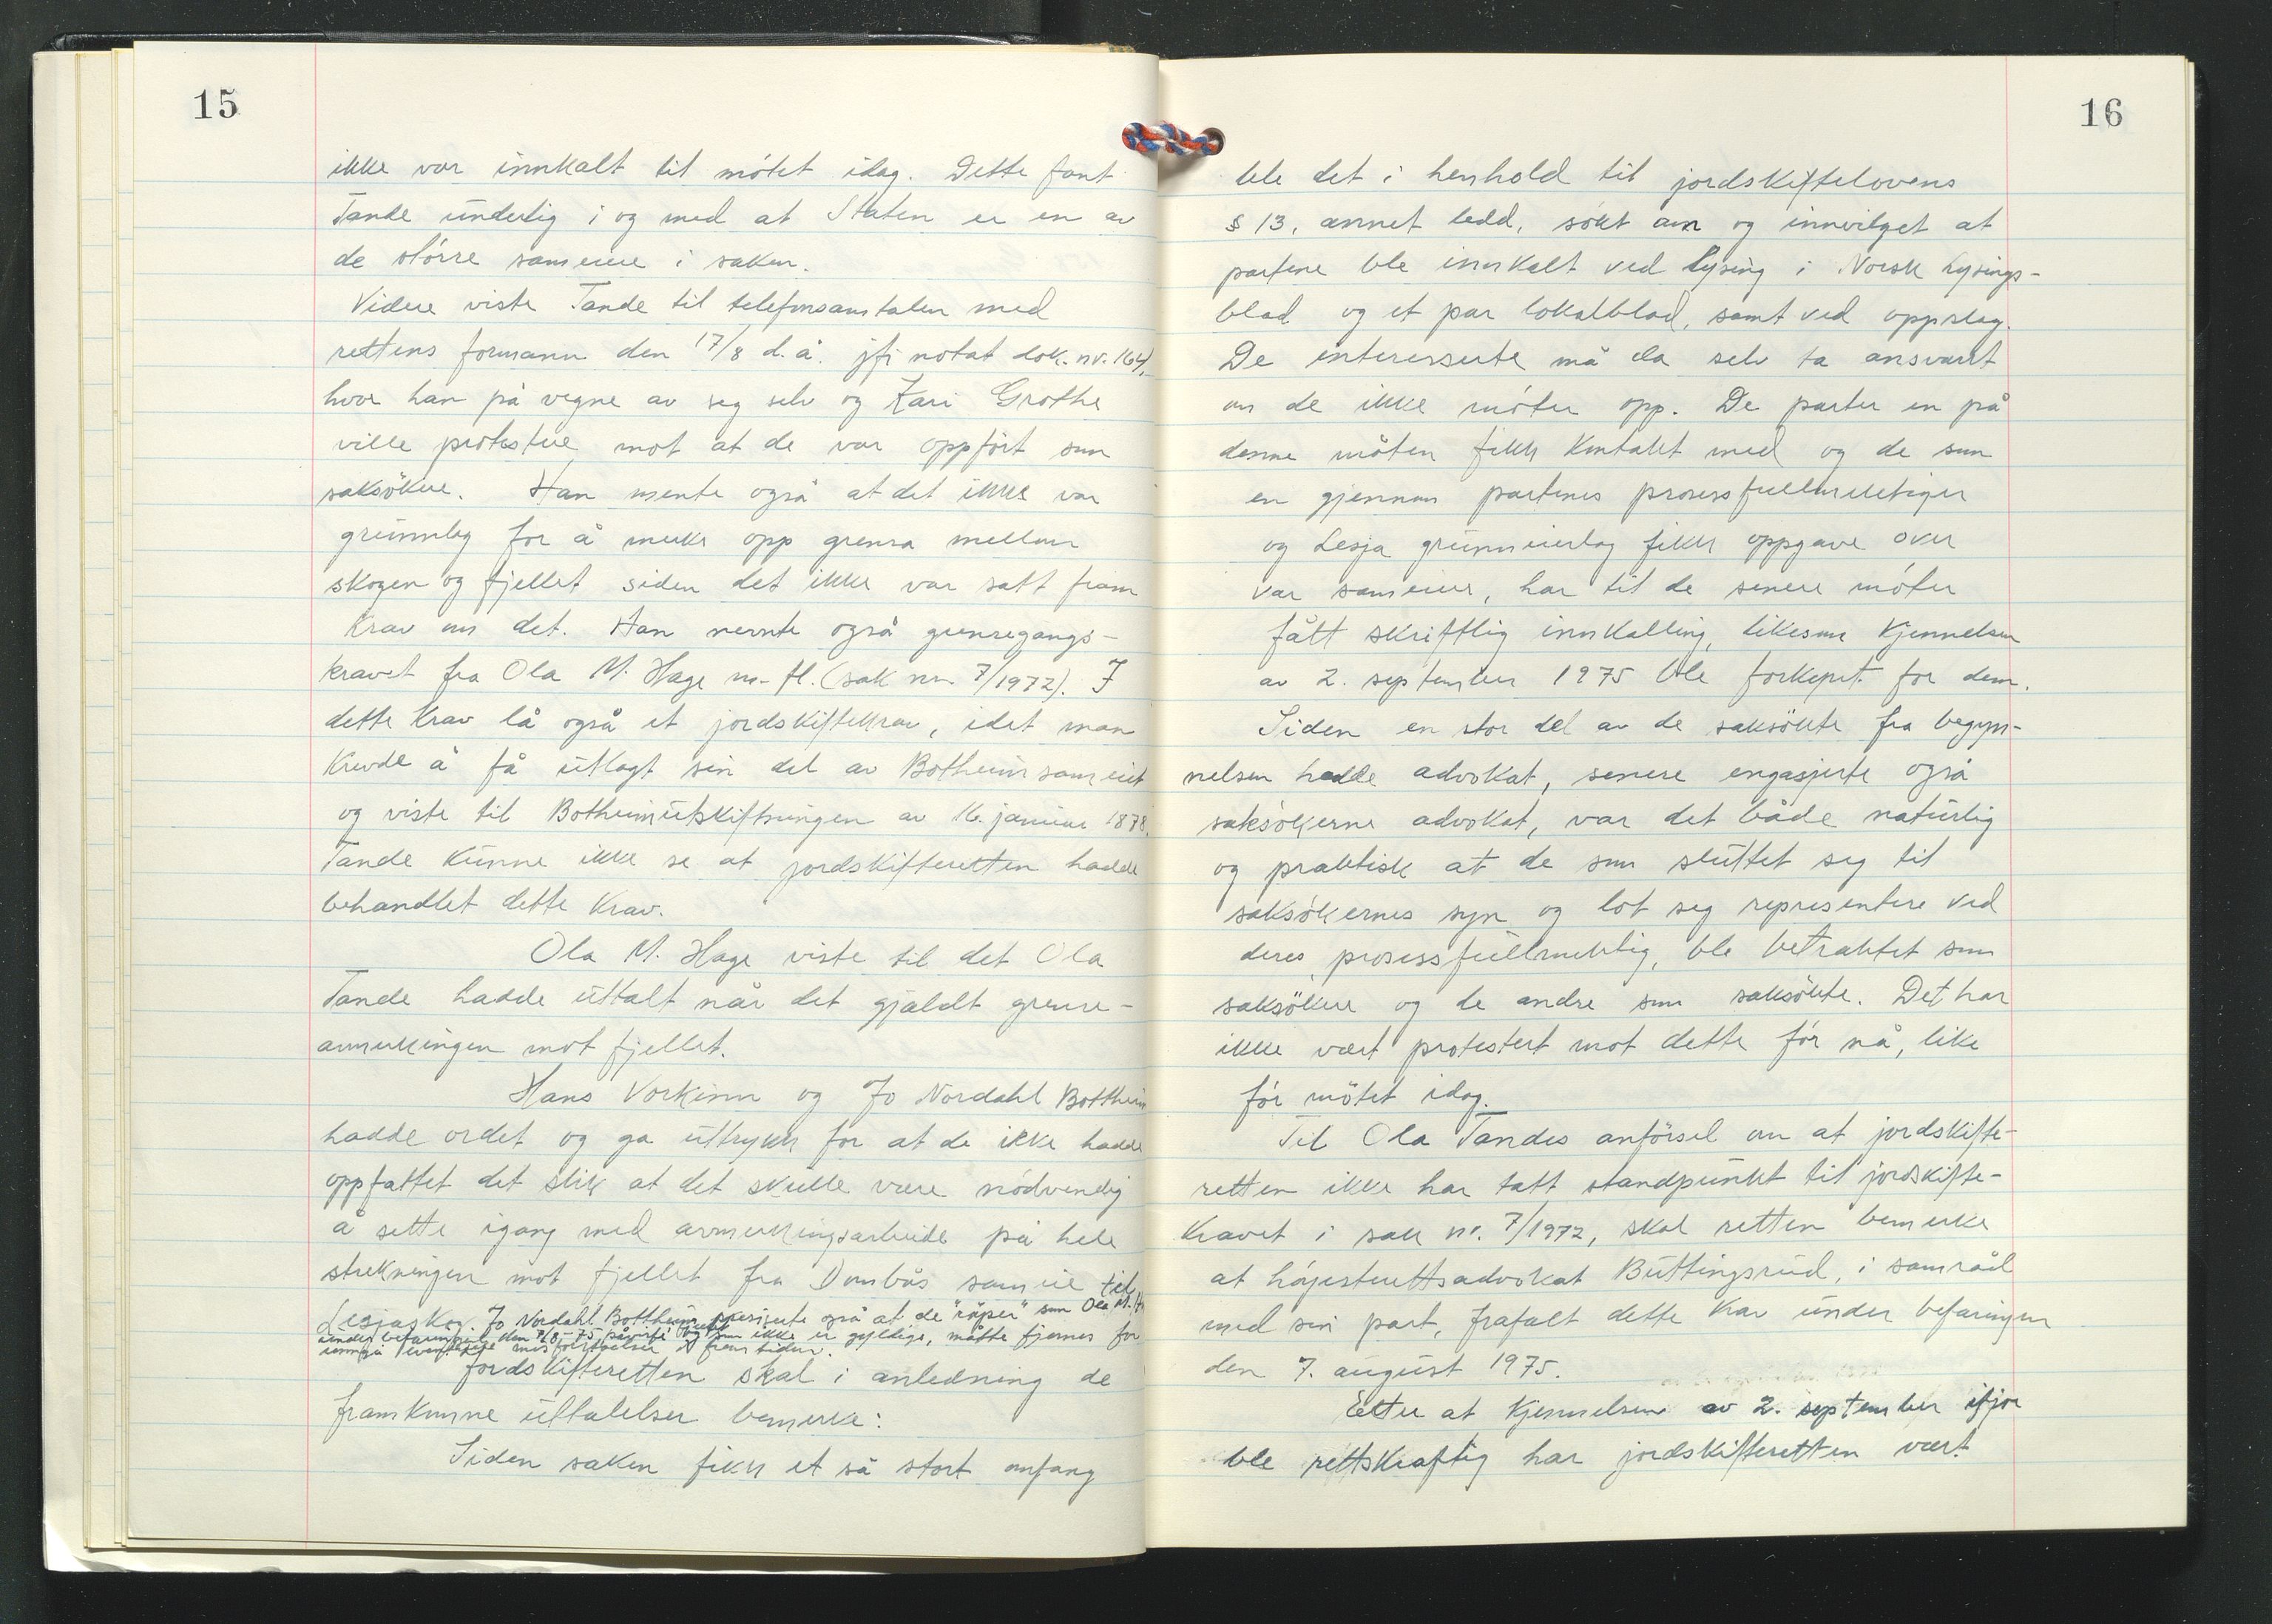 15
ikke var innkalt til møtet idag. Dette fant
Tande underlig i og med at Staten er en av
de større sameiere i saken.
Videre viste Tande til telefonsamtalen med
rettens formann den 17/8 d.å. jfr notat dok. nr. 164,
hvor han på vegne av seg selv og Kari Grothe
ville protestere mot at de var oppført som
saksökere. Han mente også at det ikke var
grunnlag for å merke opp grensa mellom
skogen og fjellet siden det ikke var satt fram
krav om det. Han nevnte også grensegangs-
kravet fra Ola M. Hage m.fl. (sak nr. 7/1972). I
dette krav lå også et jordskiftekrav, idet man
krevde å få utlagt sin del av Botheim sameie
og viste til Botheimutskiftningen av 16. januar 1878.
Tande kunne ikke se at jordskifteretten hadde
behandlet dette krav.
Ola M. Hage viste til det Ola
Tande hadde uttalt når det gjaldt grense-
avmerkingen mot fjellet.
Hans Vorkinn og Jo Nordahl Bottheim
hadde ordet og ga uttrykk for at de ikke hadde
oppfattet det slik at det skulle være nödvendig
å sette igang med avmerkingsarbeide på hele
strekningen mot fjellet fra Dombås sameie til
Lesjaskog. Jo Nordahl Bottheim presiserte også at de "röyser" som Ola M. H
under befaringen den 7/8-75 påviste og som ikke er gyldige, måtte fjernes for
unngå eventuelle misforståelser i framtiden.
Jordskifteretten skal i anledning de
framkomne uttalelser bemerke:
Siden saken fikk et så stort omfang
16
ble det i henhold til jordskiftelovens
§ 13, annet ledd, søkt om og innvilget at
partene ble innkalt ved lysing i Norsk Lysings-
blad og et par lokalblad, samt ved oppslag.
De interesserte må da selv ta ansvaret
om de ikke møter opp. De parter en på
denne måten fikk kontakt med og de som
en gjennom partenes prosessfullmektiger
og Lesja grunneierlag fikk oppgave over
var sameiere, har til de senere møter
fått skriftlig innkalling, likesom kjennelsen
av 2. september 1975 ble forkynt for dem.
Siden en stor del av de saksökte fra begyn-
nelsen hadde advokat, senere engasjerte også
saksökerne advokat, var det både naturlig
og praktisk at de som sluttet seg til
saksökernes syn og lot seg representere ved
deres prosessfullmektig, ble betraktet som
saksökere og de andre som saksökte. Det har
ikke vært protestert mot dette før nå, like
før møtet idag.
Til Ola Tandes anførsel om at jordskifte-
retten ikke har tatt standpunkt til jordskifte-
kravet i sak nr. 7/1972, skal retten bemerke
at høyesterettsadvokat Buttingsrud, i samråd
med sin part, frafalt dette krav under befaringen
den 7. august 1975.
Etter at kjennelsen av 2. september ifjor
ble rettskraftig har jordskifteretten vært